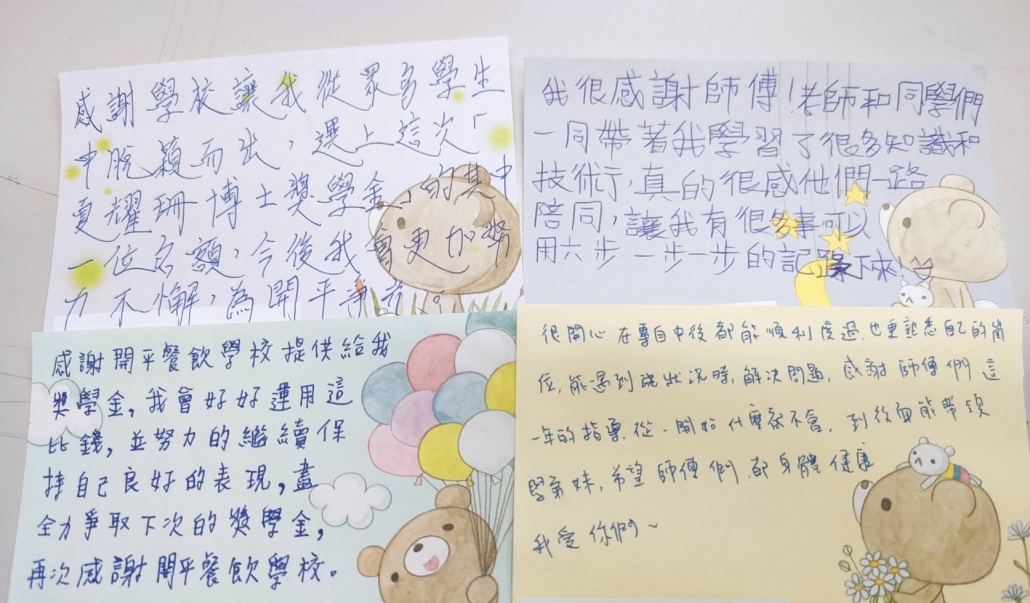 感謝學校讓我從眾多學生
中脫穎而出，選上這次「
夏耀珊博士獎學金」的其中
一位名額，今後我會更加努
力不懈，為開平
我很感謝師傅!老師和同學們
一同帶著我學習了很多知識和
技術，真的很感他們一路
陪同，讓我有很多事可以
用六步一步一步的記錄下來!
感謝開平餐飲學校提供給我
獎學金，我會好好運用這
比錢，並努力的繼續保
持自己良好的表現，盡
全力爭取下次的獎學金，
再次感謝開平餐飲學校。
很開心在專自中後都能順利度過.也更熟悉自己的崗
位.能遇到狀況時.解決問題.感謝師傅們這
一年的指導.從一開始什麼都不會.到後面能帶領
學弟妹.希望師傅們.都身體健康
我愛你們~